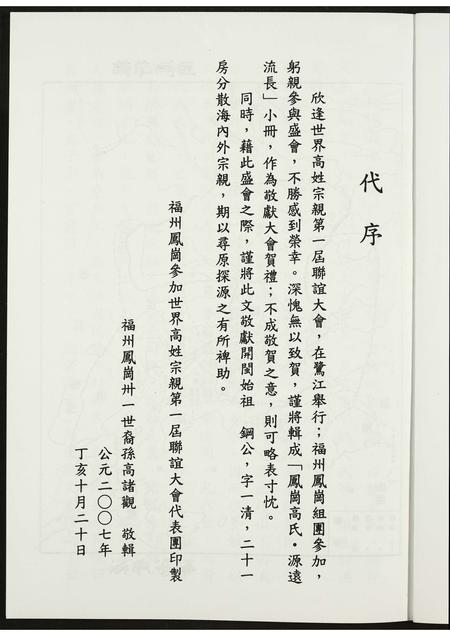 代序
欣逢世界高姓宗親第一屆聯誼大會，在鷺江舉行；福州鳳崗組團參加，
躬親參與盛會，不勝感到榮幸。深愧無以致賀，謹將輯成「鳳崗高氏•源遠
流長」小冊，作為敬獻大會賀禮；不成敬賀之意，則可略表寸忱。
同時，藉此盛會之際，謹將此文敬獻開閩始祖　鋼公，字一清，二十一
房分散海內外宗親，期以尋原探源之有所裨助。
福州鳳崗參加世界高姓宗親第一屆聯誼大會代表團印製
福州鳳崗卅一世裔孫高諸觀　敬輯
公元二〇〇七年
丁亥十月二十日